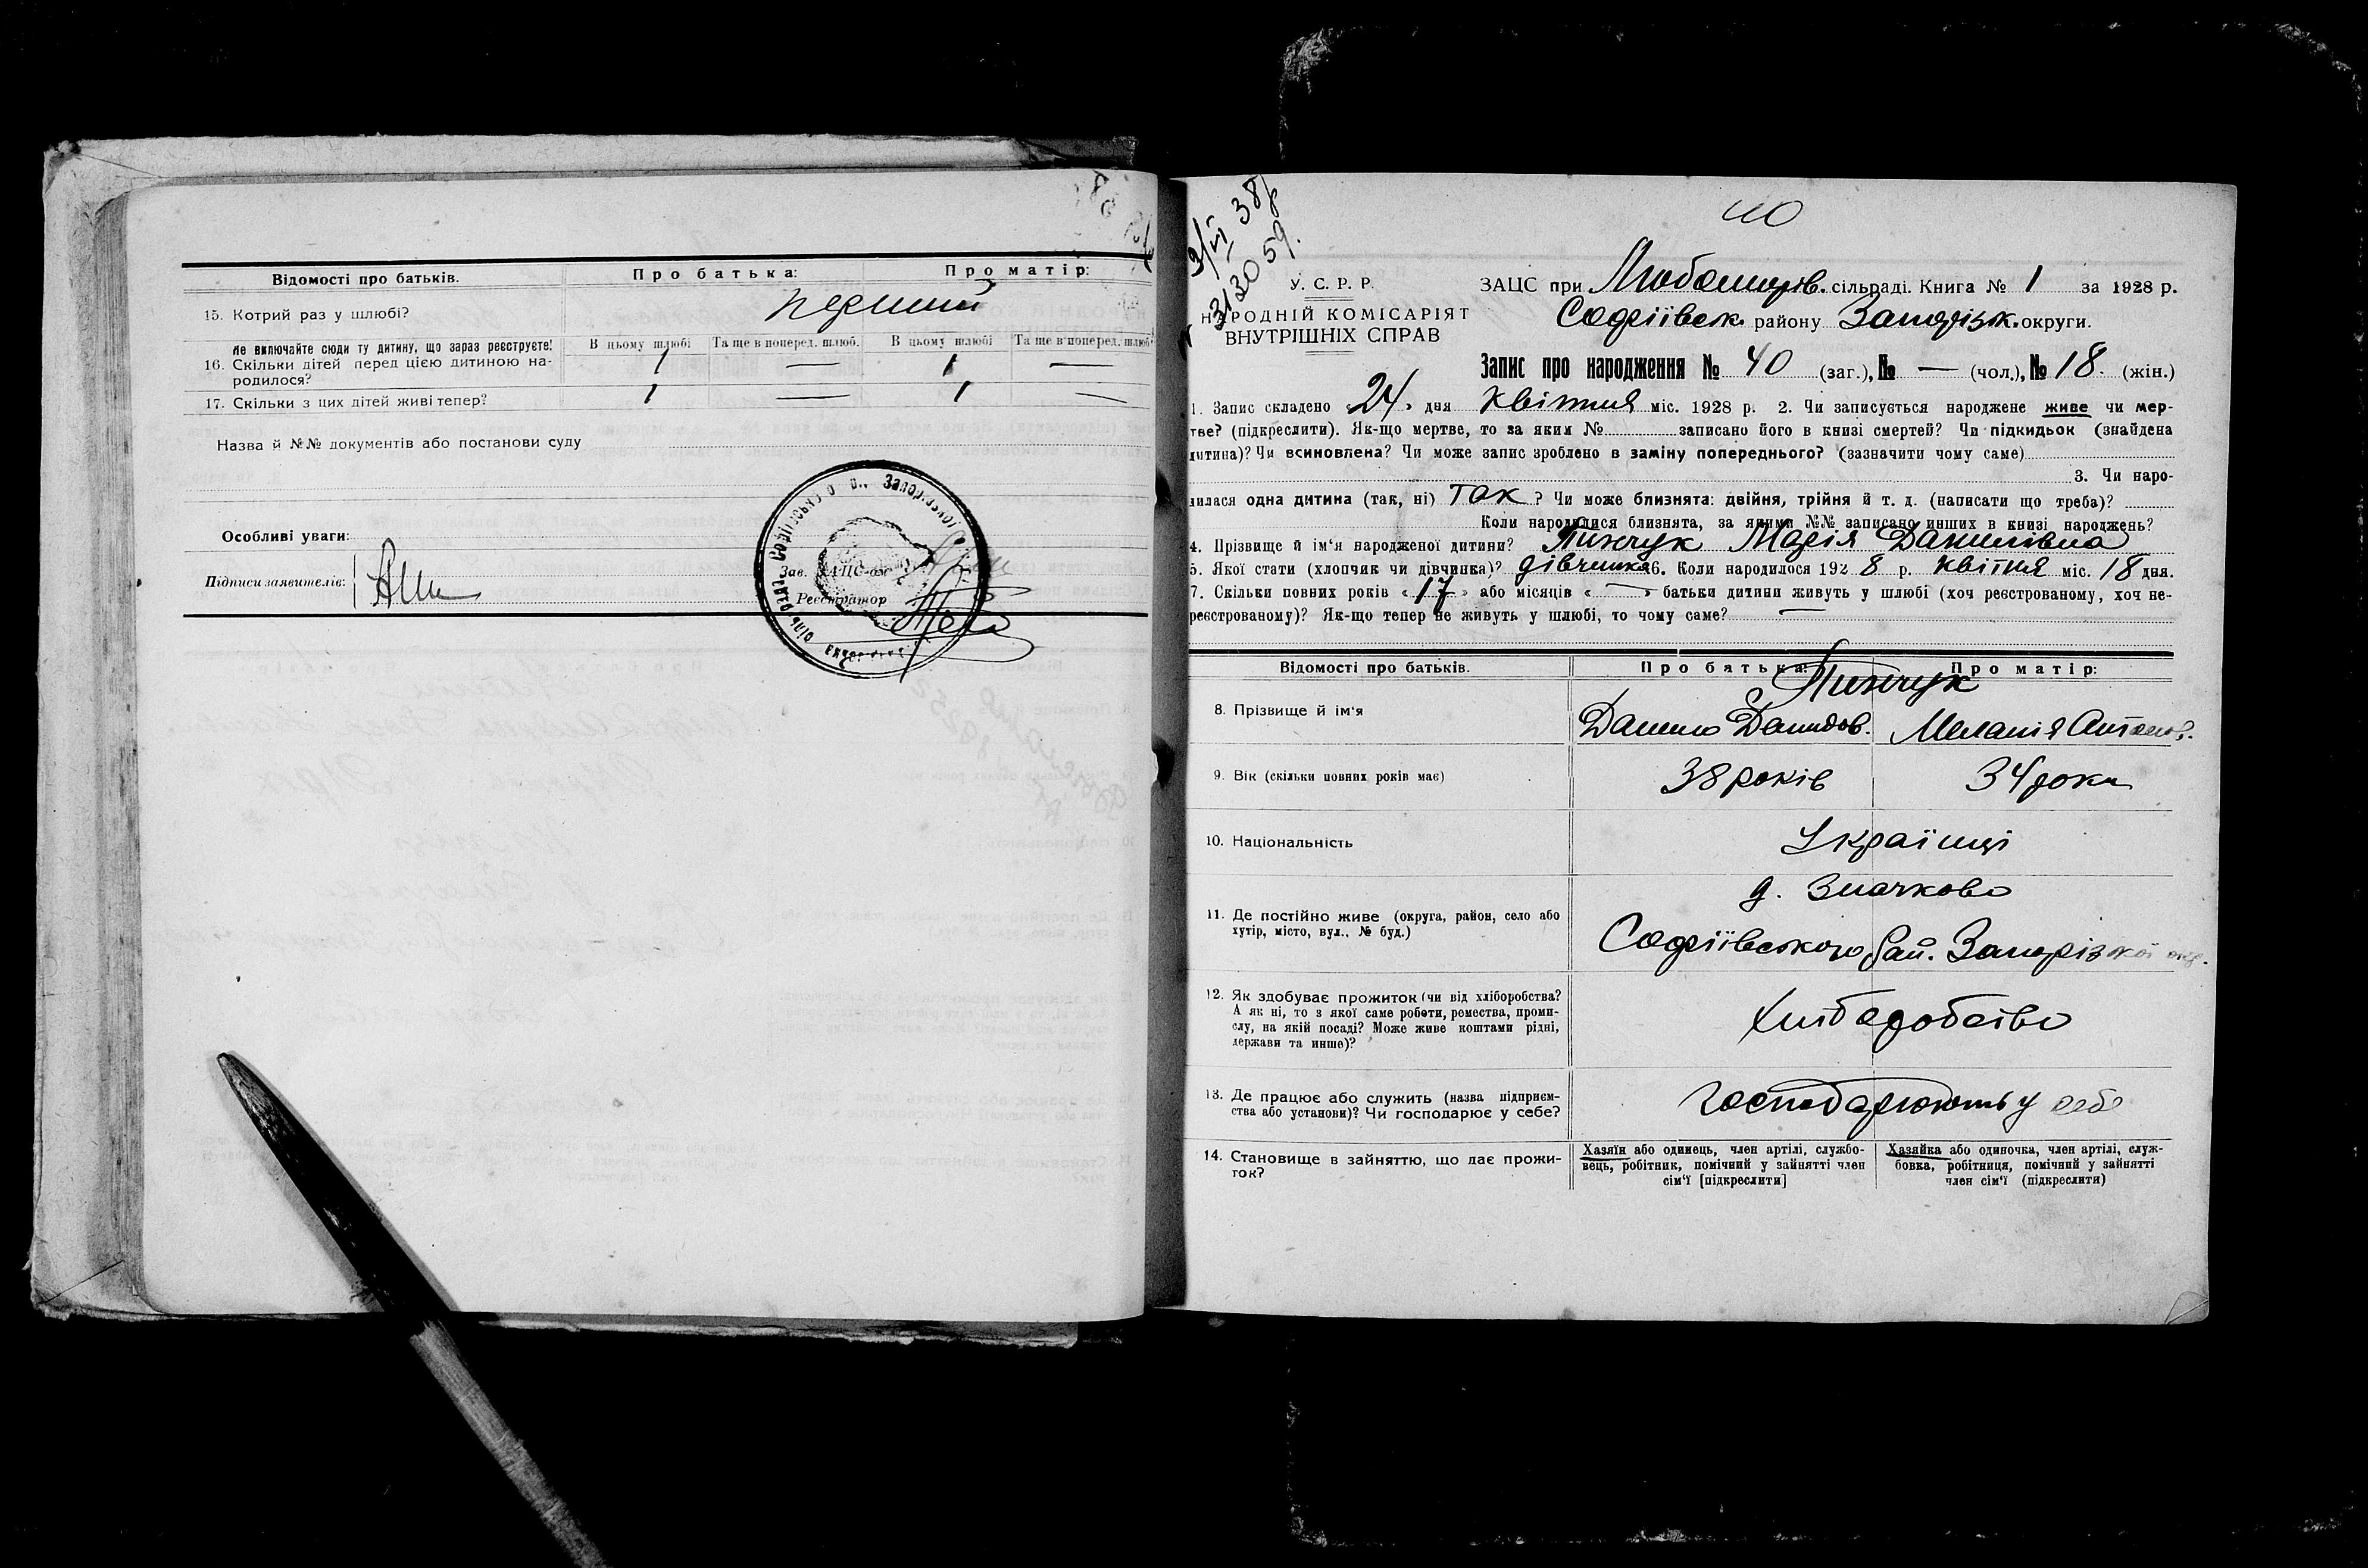 Відомості про батьків. Про батька: Про матір:
15. Котрий раз у шлюбі? перший
Не включайте сюди ту дитину, що зараз реєструєте! В цьому шлюбі Та ще в поперед. шлюб. В цьому шлюбі Та ще в поперед. шлюб.
16. Скільки дітей перед цією дитиною на- 1 — 1 —
родилося?
17. Скільки з цих дітей живі тепер? 1 — 1 —
Назва й №№ документів або постанови суду
Особливі уваги:
Підписи заявителів:
Зав. ЗАЦС-ом
Реєстратор
40
3/VI 38
3213059.
У. С. Р. Р.
НАРОДНІЙ КОМІСАРІЯТ
ВНУТРІШНІХ СПРАВ
ЗАЦС при сільраді. Книга № 1 за 1928 р.
Софіївськ. району Запорізьк. округи.
Запис про народження № 40 (заг.), № — (чол.), № 18. (жін.)
1. Запис складено «24» дня квітня міс. 1928 р. 2. Чи записується народжене живе чи мер-
тве? (підкреслити). Як-що мертве, то за яким № записано його в книзі смертей? Чи підкидьок (знайдена
дитина)? Чи всиновлена? Чи може запис зроблено в заміну попереднього? (зазначити чому саме)
3. Чи наро-
дилася одна дитина (так, ні) так? Чи може близнята: двійня, трійня й т. д. (написати що треба)?
Коли народилися близнята, за якими №№ записано инших в книзі народжень?
4. Прізвище й ім'я народженої дитини? Пинчук Марія Данилівна
5. Якої стати (хлопчик чи дівчинка)? дівчинка 6. Коли народилося 1928 р. квітня міс. 18 дня.
7. Скільки повних років «17» або місяців «—» батьки дитини живуть у шлюбі (хоч реєстрованому, хоч не-
реєстрованому)? Як-що тепер не живуть у шлюбі, то чому саме? —
Відомості про батьків. Про батька: Про матір:
Пинчук
8. Прізвище й ім'я Данило Давидов. Меланія Антонов.
9. Вік (скільки повних років має) 38 років 34 роки
10. Національність Українці
д. Значково
11. Де постійно живе (округа, район, село або
хутір, місто, вул., № буд.) Софіївського рай. Запорізької окр.
12. Як здобуває прожиток (чи від хліборобства?
А як ні, то з якої саме роботи, ремества, проми-
слу, на якій посаді? Може живе коштами рідні,
держави та инше)? Хліборобство
13. Де працює або служить (назва підприєм-
ства або установи)? Чи господарює у себе? господарюють у себе
14. Становище в зайняттю, що дає прожи-
ток?
Хазяїн або одинець, член артілі, службо-
вець, робітник, помічний у зайнятті член
сім'ї [підкреслити]
Хазяйка або одиночка, член артілі, служ-
бовка, робітниця, помічний у зайнятті
член сім'ї (підкреслити)